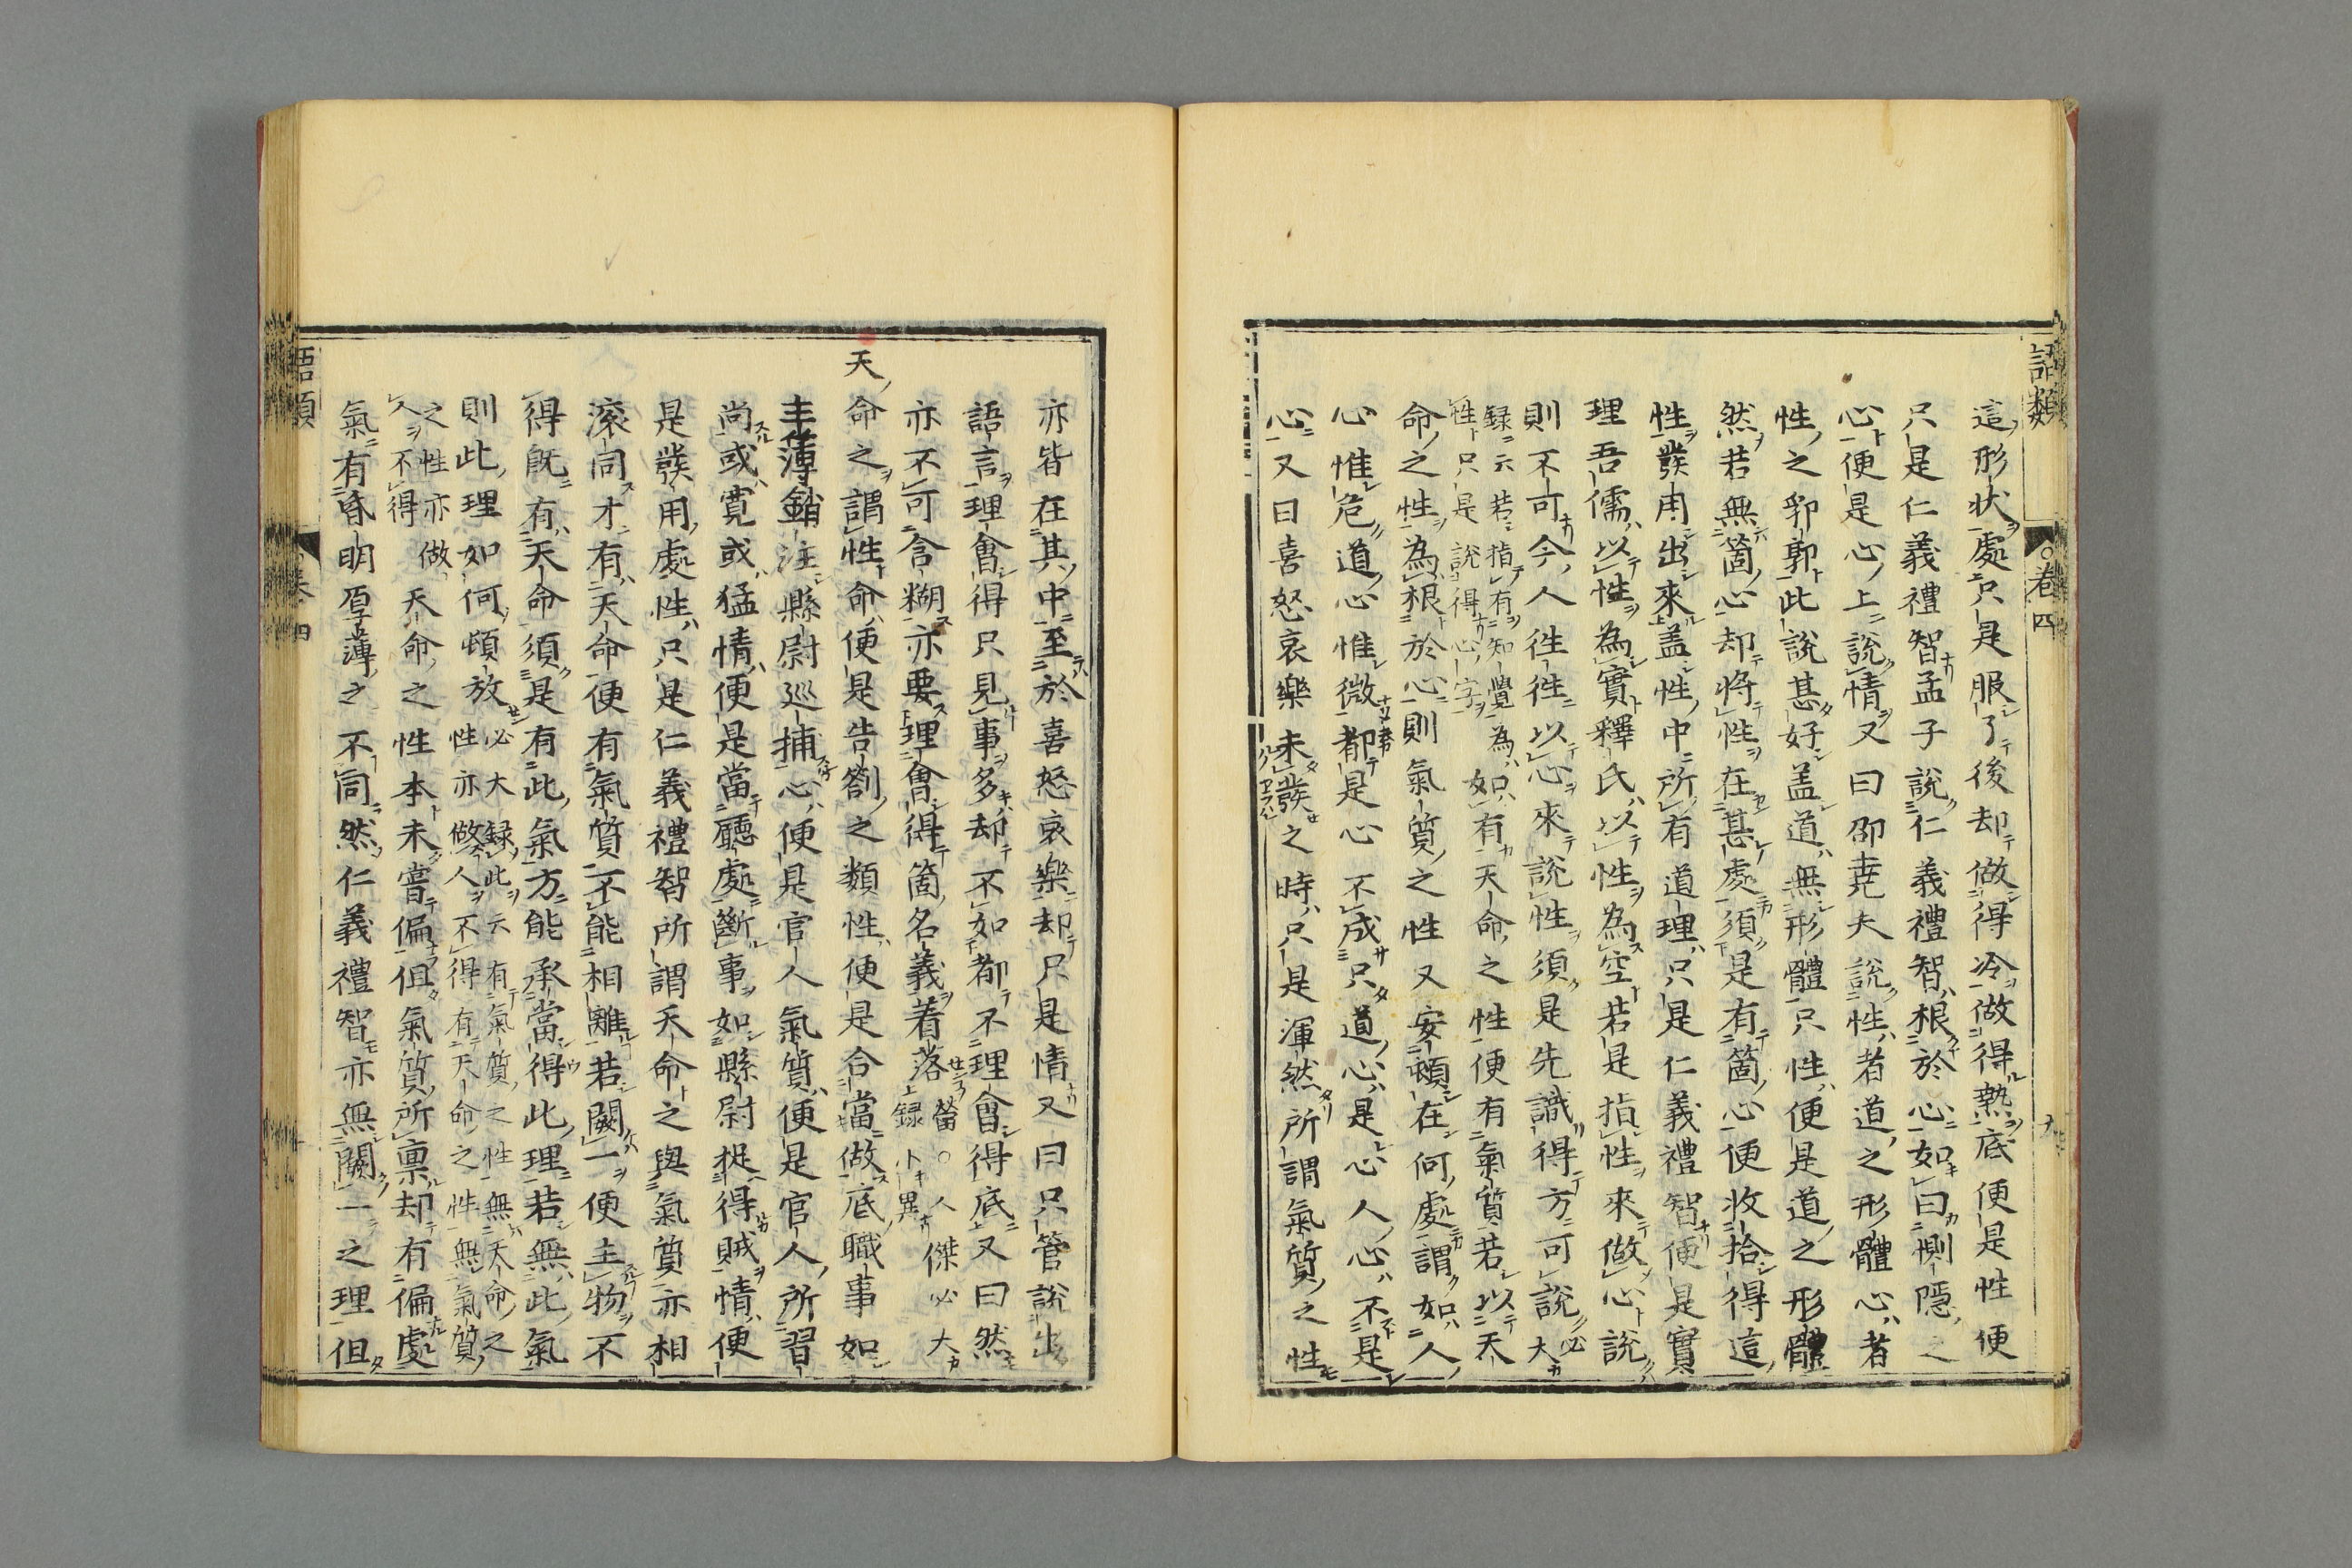 語類
○卷四
這形狀處只是服了後却做得冷做得熱底便是性便
只是仁義禮智孟子說仁義禮智根於心如曰惻隱之
心便是心上說情又曰邵堯夫說性者道之形體心者
性之郛郭此說甚好盖道無形體只性便是道之形體
然若無箇心却將性在甚處須是有箇心便收拾得這
性發用出來盖性中所有道理只是仁義禮智便是實
理吾儒以性為實釋氏以性為空若是指性來做心說
則不可今人徃徃以心來說性須是先識得方可說必大
録云若指有知覺為
性只是說得心字
如有天命之性便有氣質若以天
命之性為根於心則氣質之性又安頓在何處謂如人
心惟危道心惟微都是心不成只道心是心人心不是
心又曰喜怒哀樂未發之時只是渾然所謂氣質之性
亦皆在其中至於喜怒哀樂却只是情又曰只管說出
語言理會得只見事多却不如都不理會得底又曰然
亦不可含糊亦要理會得箇名義着落
㽦○人傑必大
録小異
天命之謂性命便是告劄之類性便是合當做底職事如
主簿銷注縣尉巡捕心便是官人氣質便是官人所習
尚或寬或猛情便是當廳處斷事如縣尉捉得賊情便
是發用處性只是仁義禮智所謂天命之與氣質亦相
滚同才有天命便有氣質不能相離若闕一便主物不
得旣有天命須是有此氣方能承當得此理若無此氣
則此理如何頓放
必大録此云有氣質之性無天命之
性亦做人不得有天命之性無氣質
之性亦做
人不得
天命之性本未嘗偏但氣質所禀却有偏處
氣有昏明厚薄之不同然仁義禮智亦無闕一之理但
語類
卷四